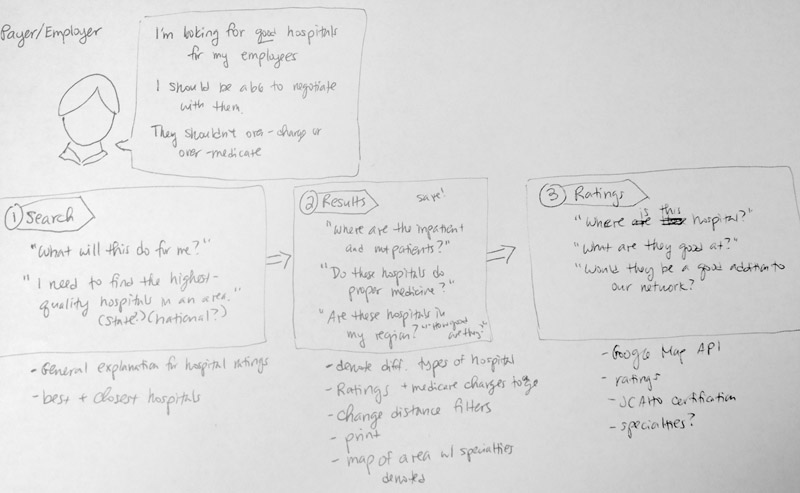 Payer/Employer
I'm looking for good hospitals
for my employees
I should be able to negotiate
with them.
They shouldn't over-charge or
over-medicate
① Search
"What will this do for me?"
"I need to find the highest-
quality hospitals in an area."
(State?) (national?)
- General explanation for hospital ratings
- best + closest hospitals
② Results
save!
"Where are the inpatient
and outpatients?"
"Do these hospitals do
proper medicine?"
"Are these hospitals in
my region?" "How good
are they?"
- denote diff. types of hospital
- Ratings + medicare charges
- change distance filters
- print
- map of area w/ specialties
denoted
③ Ratings
is this
"Where are hospital?"
"What are they good at?"
"Would they be a good addition to
our network?
- Google Map API
- ratings
- JCAHO certification
- specialties?